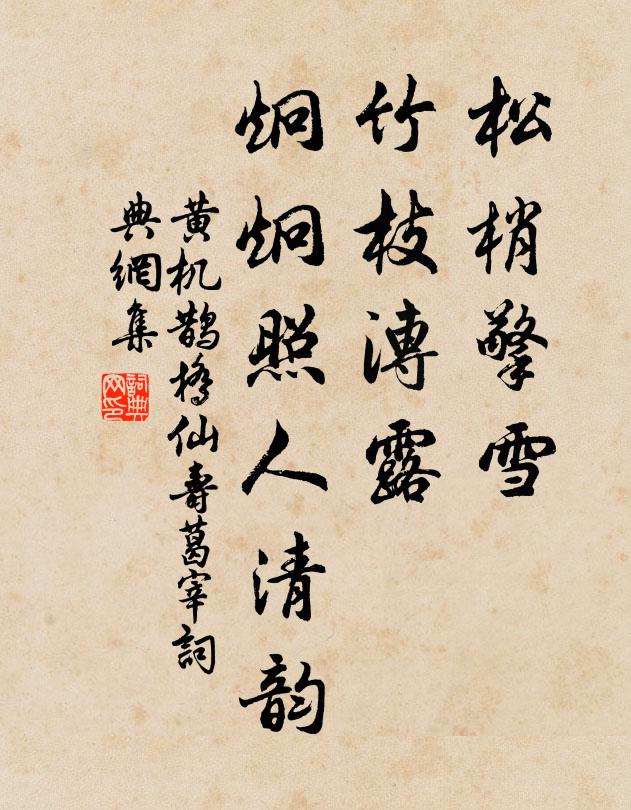 松梢擎雪
竹枝漙露
炯炯照人清韵
黄机鹊桥仙寿葛宰词
典網集
詞典
网印